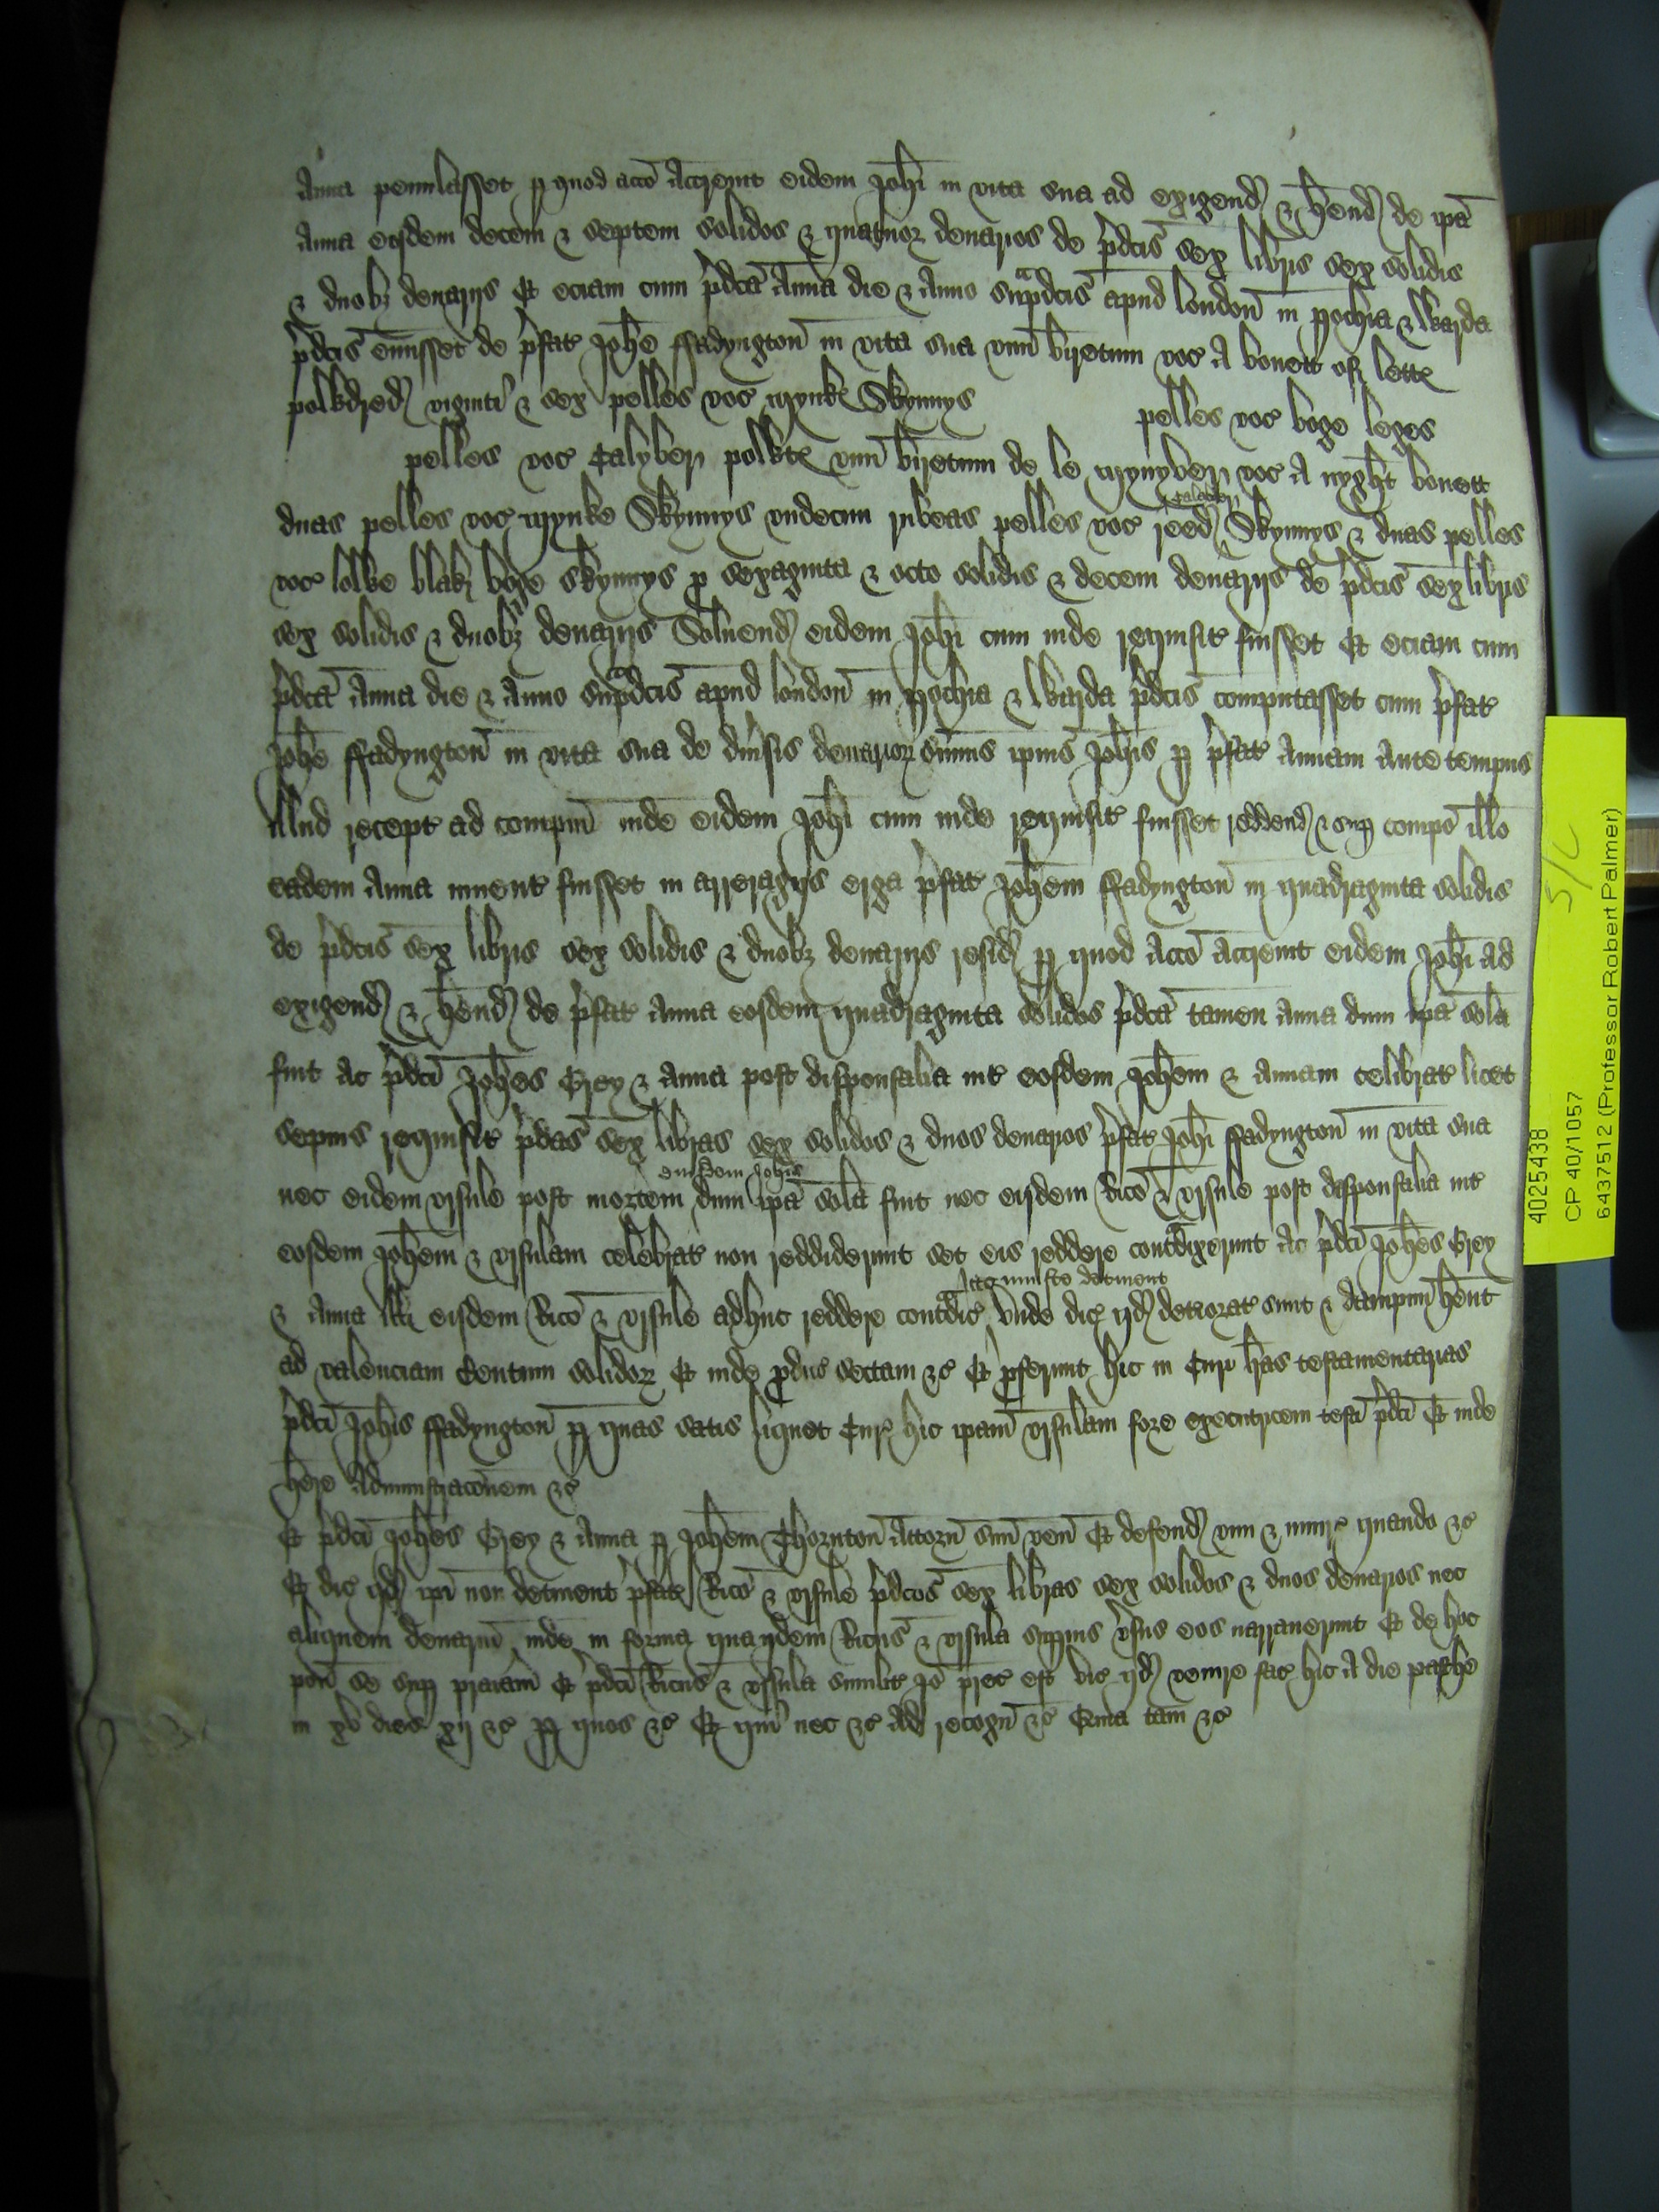 Anna pemilasset p quod acco Accrevit eidem Johi in vita sua ad exigend & hend de ipa
Anna eosdem decem & septem solidos & quatuor denarios de pdcis sex libris sex solidis
& duobz denarijs Et eciam cum pdca Anna die & Anno supadcis apud london in pochia & Warda
pdcis emisset de pfat Johe ffadyngton in vita sua unu biretum voc A bonett of lett
polkdred viginti & sex pelles voc mynk Skynnys pelles voc boge leges
pelles voc Calyber polkt unu biretum de le mynyver voc A nyght bonett
duas pelles voc mynke Skynnys undecim rubeas pelles voc reed calaber Skynnys & duas pelles
voc blak boge skynnys p sexaginta & octo solidis & decem denarijs de pdcis sex libris
sex solidis & duobz denarijs Solvend eidem Johi cum inde requisit fuisset Et eciam cum
pdca Anna die & Anno supadcis apud london in pochia & Warda pdcis computasset cum pfat
Johe ffadyngton in vita sua de divsis denarior sumis ipius Johis p pfat Annam Ante tempus
illud recept ad compm inde eidem Johi cum inde requisit fuisset reddend & sup compo illo
eadem Anna invent fuisset in arreragijs erga pfat Johem ffadyngton in quadraginta solidis
de pdcis sex libris sex solidis & duobz denarijs resid p quod Acco accrevit eidem Johi ad
exigend & hend de pfat Anna eosdem quadraginta solidos pdca tamen Anna dum ipa sola
fuit Ac pdci Johes Grey & Anna post disponsalia int eosdem Johem & Annam celibrat licet
sepius requisit pdcas sex libras sex solidos & duos denarios pfat Johi ffadyngton in vita sua
nec eidem Ursule post mortem eiusdem Johis dum ipa sola fuit nec eisdem Rico & Ursule post disponsalia int
eosdem Johem & Ursulam celebrat non reddiderunt set eis reddere contadixerunt Ac pdci Johes Grey
& Anna illi eisdem Rico & Ursule adhuc reddere contadic & iniuste detinent Unde dic qd deteriorat sunt & dampnu hent
ad valenciam Centum solidor Et inde pduc sectam &c Et pferunt hic in Cur lras testamentarias
pdci Johis ffadyngton p quas satis liquet Cur hic ipam Ursulam fore executricem testi pdci Et inde
here Administracoem &c
Et pdci Johes Grey & Anna p Johem Thornton Attorn suu ven Et defend vim & iniur quando &c
Et dic qd ipi non detinent pfat Rico & Ursule pdcos sex libras sex solidos & duos denarios nec
aliquem denariu inde in forma qua ijdem Ricus & Ursula supius vsus eos narraverunt Et de hoc
pon se sup priam Et pdci Ricus & Ursula similit Io prec est vic qd venire fac hic A die pasche
in xv dies xij &c p quos &c Et qui nec &c Ad recogn &c Quia tam &c
4025438
CP 40/1057
6437512 (Professor Robert Palmer)